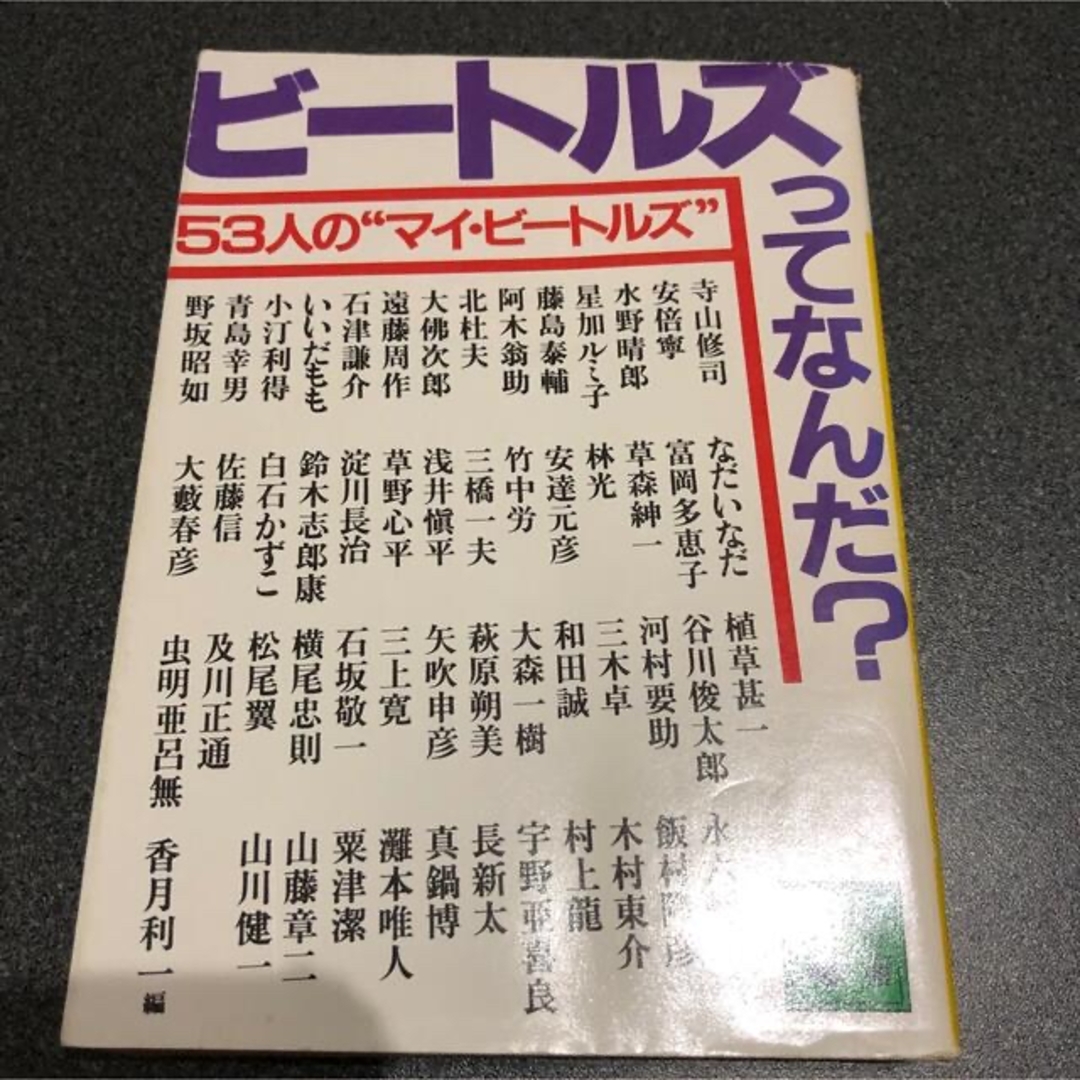 ビートルズ
ってなんだ?
53人の“マイ・ビートルズ”
寺山修司
安倍寧
水野晴郎
星加ルミ子
藤島泰輔
阿木翁助
北杜夫
大佛次郎
遠藤周作
石津謙介
いいだもも
小汀利得
青島幸男
野坂昭如
なだいなだ
富岡多恵子
草森紳一
林光
安達元彦
竹中労
三橋一夫
浅井愼平
草野心平
淀川長治
鈴木志郎康
白石かずこ
佐藤信
大藪春彦
植草甚一
谷川俊太郎
河村要助
三木卓
和田誠
大森一樹
萩原朔美
矢吹申彦
三上寛
石坂敬一
横尾忠則
松尾翼
及川正通
虫明亜呂無
永六
飯村隆彦
木村東介
村上龍
宇野亜喜良
長新太
真鍋博
灘本唯人
粟津潔
山藤章二
山川健一
香月利一 編